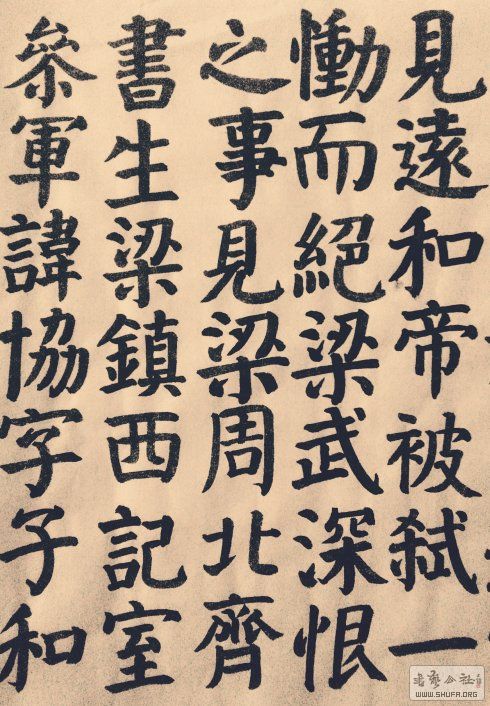 見遠和帝被弒一
慟而絕梁武深恨
之事見梁周北齊
書生梁鎮西記室
叅軍諱協字子和
WWW.SHUFA.ORG